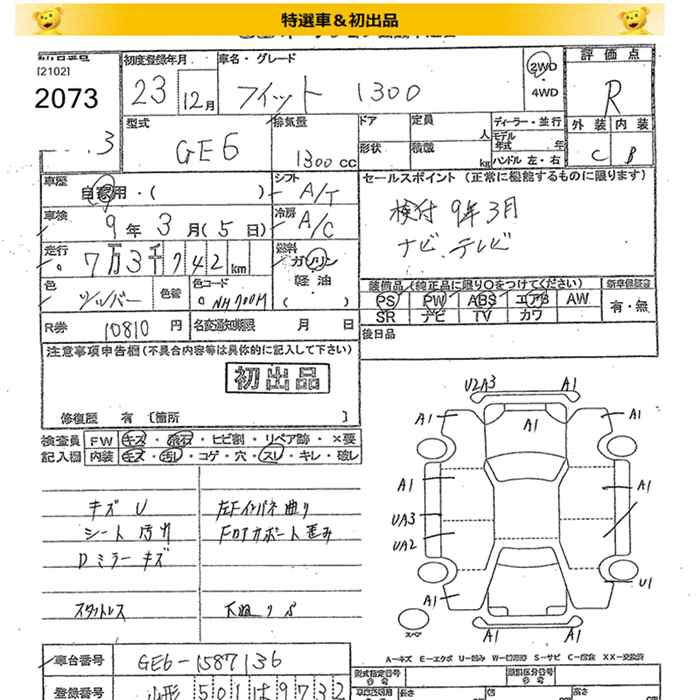 特選車＆初出品
[2102]
2073
3
初度登録年月
23 12月
車名・グレード
フィット 1300
2WD
・
4WD
評価点
R
外装 内装
C B
型式
GE6
排気量
1300 cc
ドア
定員
人
形状
積載
kg
ディーラー・並行
モデル
年式 年
ハンドル 左・右
車歴
自家用・( )
シフト
A/T
車検
9年 3月 (5日)
冷房
A/C
走行
7万3千742km
燃料
ガソリン
軽油
( )
色
シルバー
色替
色コード
NH700M
R券
10810 円
名変通知期限
月 日
セールスポイント (正常に機能するものに限ります)
検付 9年3月
ナビ、テレビ
装備品(純正品に限り○をつけてください)
新車保証書
PS PW ABS エアB AW
SR ナビ TV カワ
有・無
後日品
注意事項申告欄(不具合内容等は具体的に記入して下さい)
初出品
修復歴 有 [箇所 ]
検査員
記入欄
FW キズ・飛石・ヒビ割・リペア跡・×要
内装 キズ・汚レ・コゲ・穴・スレ・キレ・破レ
キズ U
シート汚れ
Dミラーキズ
スタットレス
左Fインパネ曲り
Fロアサポート歪み
U2A3 A1
A1 A1
A1 A1
UA3
UA2
A1 U1
A1 A1
スペア
A-キズ E-エクボ U-凹み W-凹凸跡 S-サビ C-腐食 XX-交換済
車台番号
GE6-1587136
登録番号
山形 501 は 9732
型式指定番号
類別区分番号
長さ
高さ